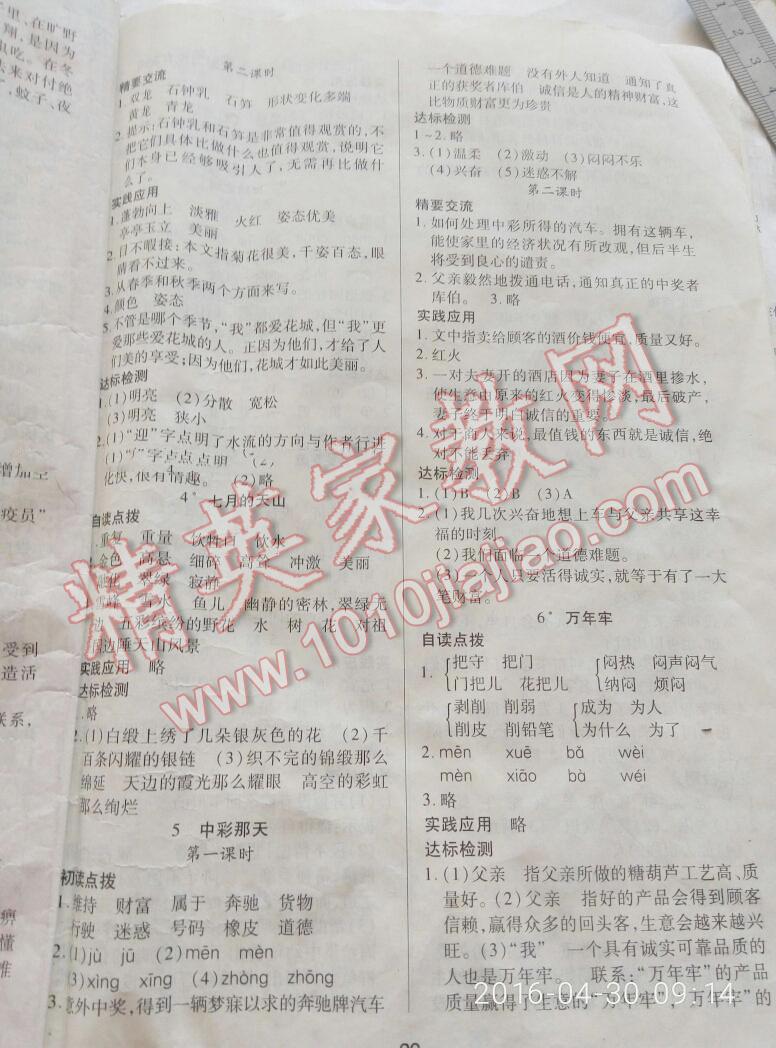 里、在旷野
翔，是因为
虫吃。在冬
来对付绝
，蚊子、夜
增加
疫员”
受到
造活
联系，
痹
懂
难
第二课时
精要交流
1. 双龙 石钟乳 石笋 形状变化多端
黄龙 青龙
2. 提示：石钟乳和石笋是非常值得观赏的，不
把它们具体比做什么也值得观赏，说明它
们本身已经够吸引人了，无需再比做什
么了。
实践应用
1. 蓬勃向上 淡雅 火红 姿态优美
亭亭玉立 美丽
2. 目不暇接：本文指菊花很美，千姿百态，眼
睛看不过来。
3. 从春季和秋季两个方面来写。
4. 颜色 姿态
5. 不管是哪个季节，“我”都爱花城，但“我”更
爱那些爱花城的人。正因为他们，才给了人
们美的享受；因为他们，花城才如此美丽。
达标检测
1. (1)明亮 (2)分散 宽松
(3)明亮 狭小
2. (1)“迎”字点明了水流的方向与作者行进
化快，很有情趣。 (2)略
4* 七月的天山
自读点拨
重复 重量 饮牲口 饮水
金色 高悬 细碎 高耸 冲激 美丽
融化 翠绿 寂静
雪峰 雪水 鱼儿 幽静的密林，翠绿无
边 五彩缤纷的野花 水 树 花 对祖
国边陲天山风景
实践应用 略
达标检测
略
2. (1)白缎上绣了几朵银灰色的花 (2)千
百条闪耀的银链 (3)织不完的锦缎那么
绵延 天边的霞光那么耀眼 高空的彩虹
那么绚烂
5 中彩那天
第一课时
初读点拨
1. 维持 财富 属于 奔驰 货物
行驶 迷惑 号码 橡皮 道德
2. (1)jù jū (2)mēn mèn
(3)xìng xīng (4)zhòng zhōng
3. 意外中奖，得到一辆梦寐以求的奔驰牌汽车
一个道德难题 没有外人知道 通知了真
正的获奖者库伯 诚信是人的精神财富，这
比物质财富更为珍贵
达标检测
1~2. 略
3. (1)温柔 (2)激动 (3)闷闷不乐
(4)兴奋 (5)迷惑不解
第二课时
精要交流
1. 如何处理中彩所得的汽车。拥有这辆车，
能使家里的经济状况有所改观，但后半生
将受到良心的谴责。
2. 父亲毅然地拨通电话，通知真正的中奖者
库伯。 3. 略
实践应用
1. 文中指卖给顾客的酒价钱便宜，质量又好。
2. 红火
3. 一对夫妻开的酒店因为妻子在酒里掺水，
使生意由原来的红火变得惨淡，最后破产，
妻子终于明白诚信的重要。
4. 对于商人来说，最值钱的东西就是诚信，绝
对不能丢弃。
达标检测
1. (1)B (2)B (3)A
2. (1)我几次兴奋地想上车与父亲共享这幸
福的时刻
(2)我们面临一个道德难题。
(3)一个人只要活得诚实，就等于有了一大
笔财富。
6* 万年牢
自读点拨
1. 把守 把门 闷热 闷声闷气
门把儿 花把儿 纳闷 烦闷
剥削 削弱 成为 为人
削皮 削铅笔 为什么 为了
2. mēn xuē bǎ wèi
mèn xiāo bà wéi
3. 略
实践应用 略
达标检测
1. (1)父亲 指父亲所做的糖葫芦工艺高、质
量好。(2)父亲 指好的产品会得到顾客
信赖，赢得众多的回头客，生意会越来越兴
旺。(3)“我” 一个具有诚实可靠品质的
人也是万年牢。 联系：“万年牢”的产品
质量赢得了生意的“万年牢”，“万年牢”的
精英家教网
www.1010jiajiao.com
2016-04-30 09:14